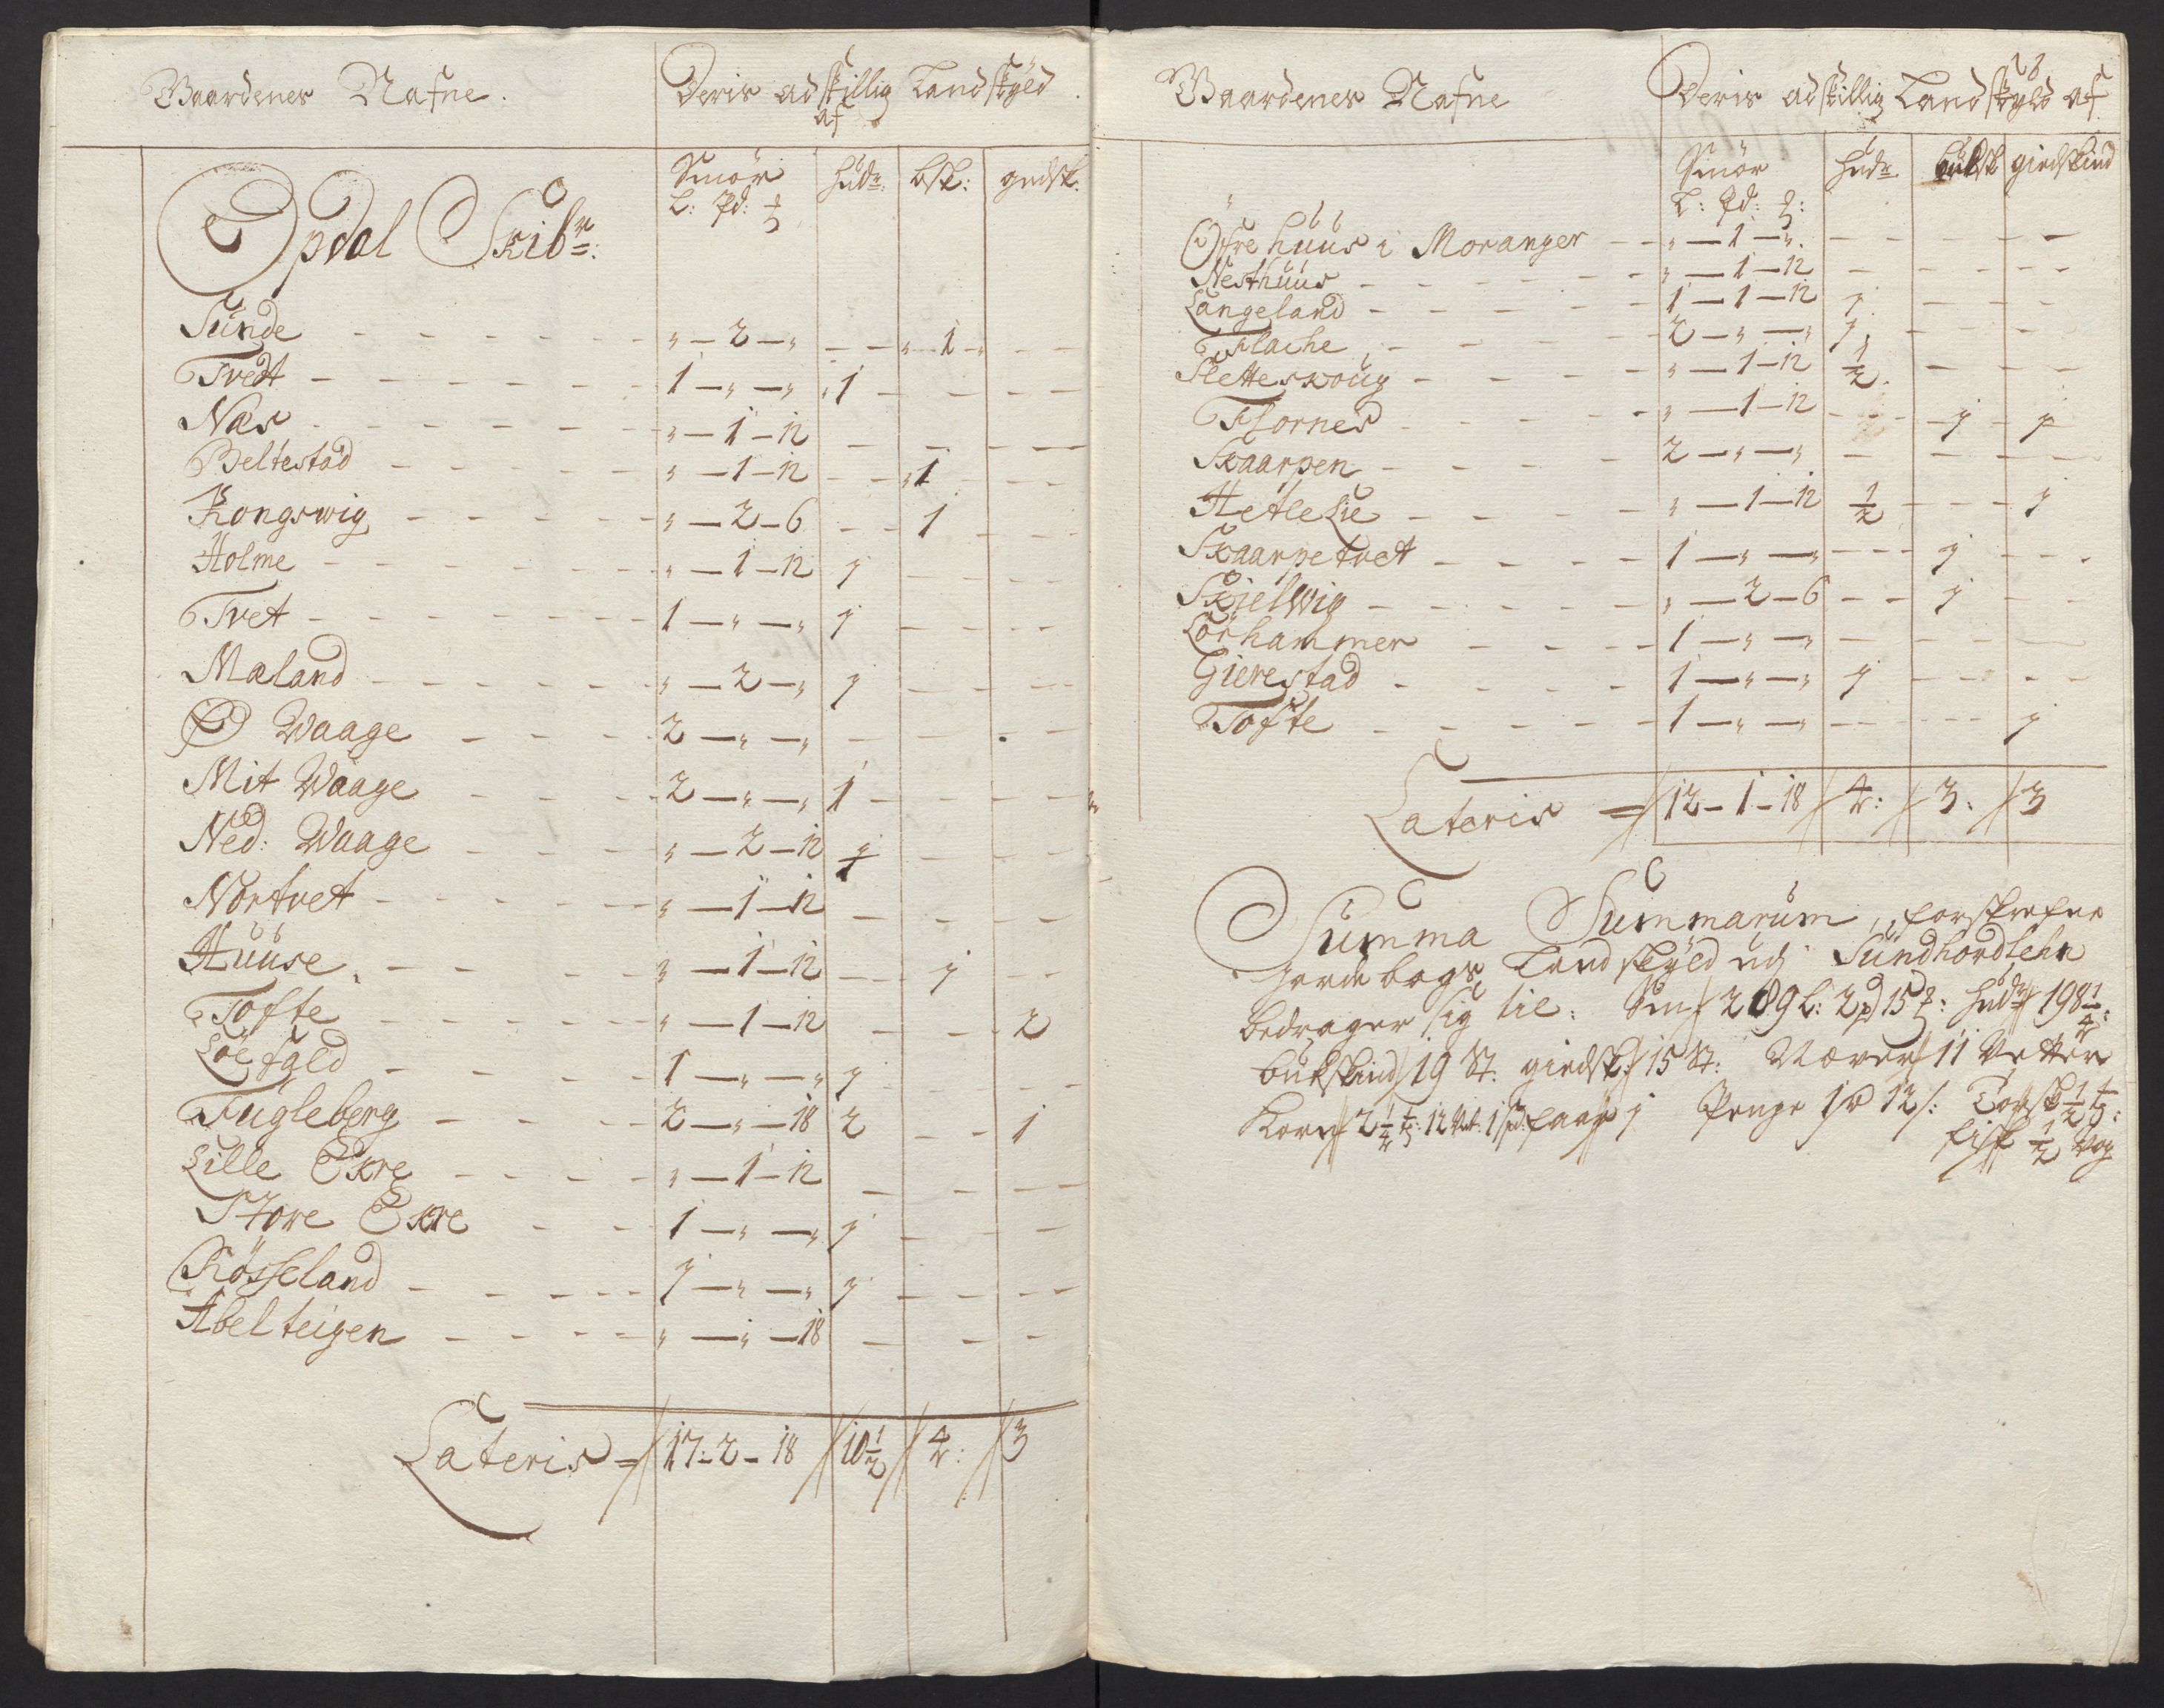 Gaardenes Nafne. Deris adskillig Landskÿld
af
Opdal Skibr: Smör hudr: bsk: gedsk:
L: Pd: ℔
Sunde - - - - - - „ — 2 — „ - - „ 1 „ - -
Tvedt - - - - - - 1 — „ — „ „ 1 - - - -
Næs - - - - - - „ — 1 — 12 - - - -
Beltestad - - - - - „ — 1 — 12 - - „ 1 - - -
Kongswig - - - - - „ — 2 — 6 - - 1 - - -
Holme - - - - - - „ — 1 — 12 j - - - -
Tvet - - - - - - 1 — „ — „ j - - - -
Mæland - - - - - - „ — 2 — „ j - - - -
Ø Waage - - - 2 — „ — „ - - - -
Mit Waage - - - 2 — „ — „ 1 - - - -
Ned: Waage - - - „ — 2 — 12 1 - - -
Nortvet - - - - - „ — 1 — 12 - - - -
Huuse - - - - - „ — 1 — 12 - - j - -
Tofte - - - - - - „ — 1 — 12 - - - 2
Löefald - - - - 1 — „ — „ j - - - -
Fugleberg - - - - 2 — „ — 18 2 - - 1
Lille Ekre - - - - „ — 1 — 12 - - - -
Store Ekre - - 1 — „ — „ j - - -
Rösseland - - - - - j — „ — „ j - - - -
Abelteigen - - - - „ — „ — 18 - - -
Lateris = 17 - 2 - 18 10 1/2 4: 3
28
Gaardenes Nafne Deris adskillig Landskyld af
Smör hudr. buksk giedskind
L: Pd: ℔:
Öfre huus i Moranger - - „ — 1 — „. - - - - -
Nesthuus - - - - - „ — 1 — 12 - - - - -
Langeland - - - - - 1 — 1 — 12 j - - -
Flache - - - - - 2 — „ — „ j - -
Sletteskoug - - - - „ — 1 — 12 1/2 - - -
Flornes - - - - „ — 1 — 12 - - - j - j
Skaarpen - - - - 2 — „ — „ - - - -
Hetle Lie - - - - „ — 1 — 12 1/2 - - - j
Skaarpetvet - - - - 1 — „ — „ - - - j - - -
Skielwig - - - - - „ — 2 — 6 - - j - -
Lörhammer - - - 1 — „ — „ - - - -
Gierestad - - - - 1 — „ — „ j - - - -
Tofte - - - - - 1 — „ — „ - - - - - j
Lateris = 12 - 1 - 18 4: 3. 3
Summa Summarum, forskrefne
jorde bogs Landskÿld udj Sundhordlehn
bedrager sig til: Smr 289 L: 2 pd 15 ℔: hudr 198 1/4:
bukskind 19 St: giedsk: 15 St: Næver 11 Vetter
Korn 2 1/4 t: 12 Mt: 1 spd: faar j Penge 1 D 12 s: Torsk 1/2 t:
fisk 1/2 Vog